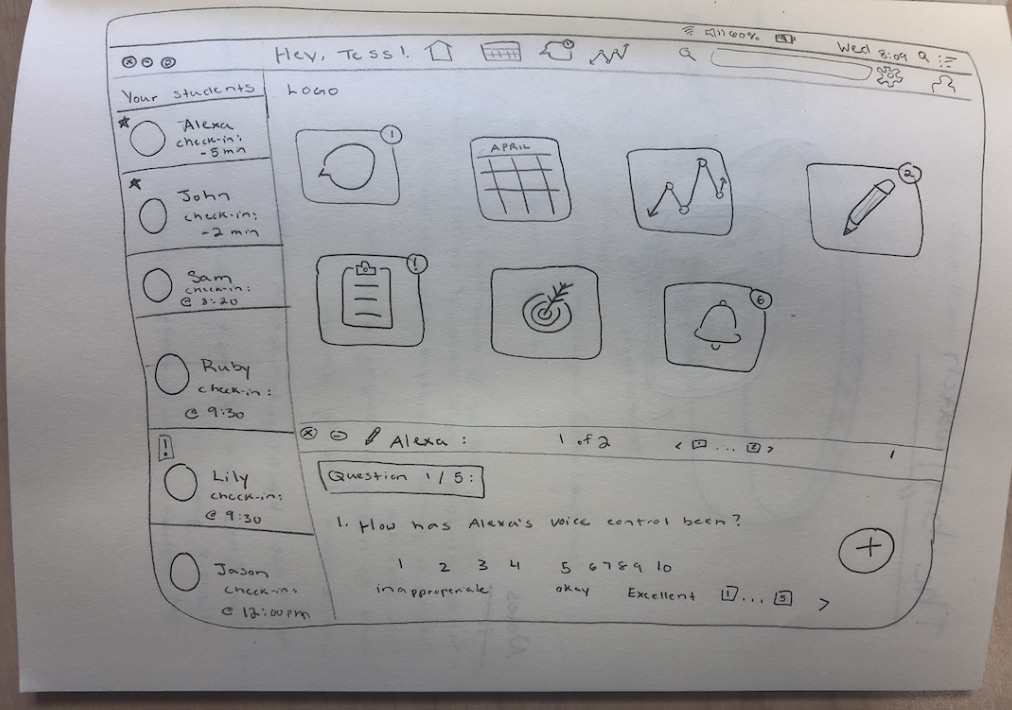 60%
Wed 8:09
Hey, Tess!
Your students
LOGO
Alexa
check-in:
-5 min
John
check-in:
-2 min
Sam
check-in:
@ 8:20
Ruby
check-in:
@ 9:30
!
Lily
check-in:
@ 9:30
Jason
check-in:
@ 12:00pm
1
APRIL
2
!
6
Alexa :
1 of 2
< 1 ... 2 >
Question 1/5:
1. How has Alexa's voice control been?
1 2 3 4 5 6 7 8 9 10
inappropriate okay Excellent 1 ... 5 >
+